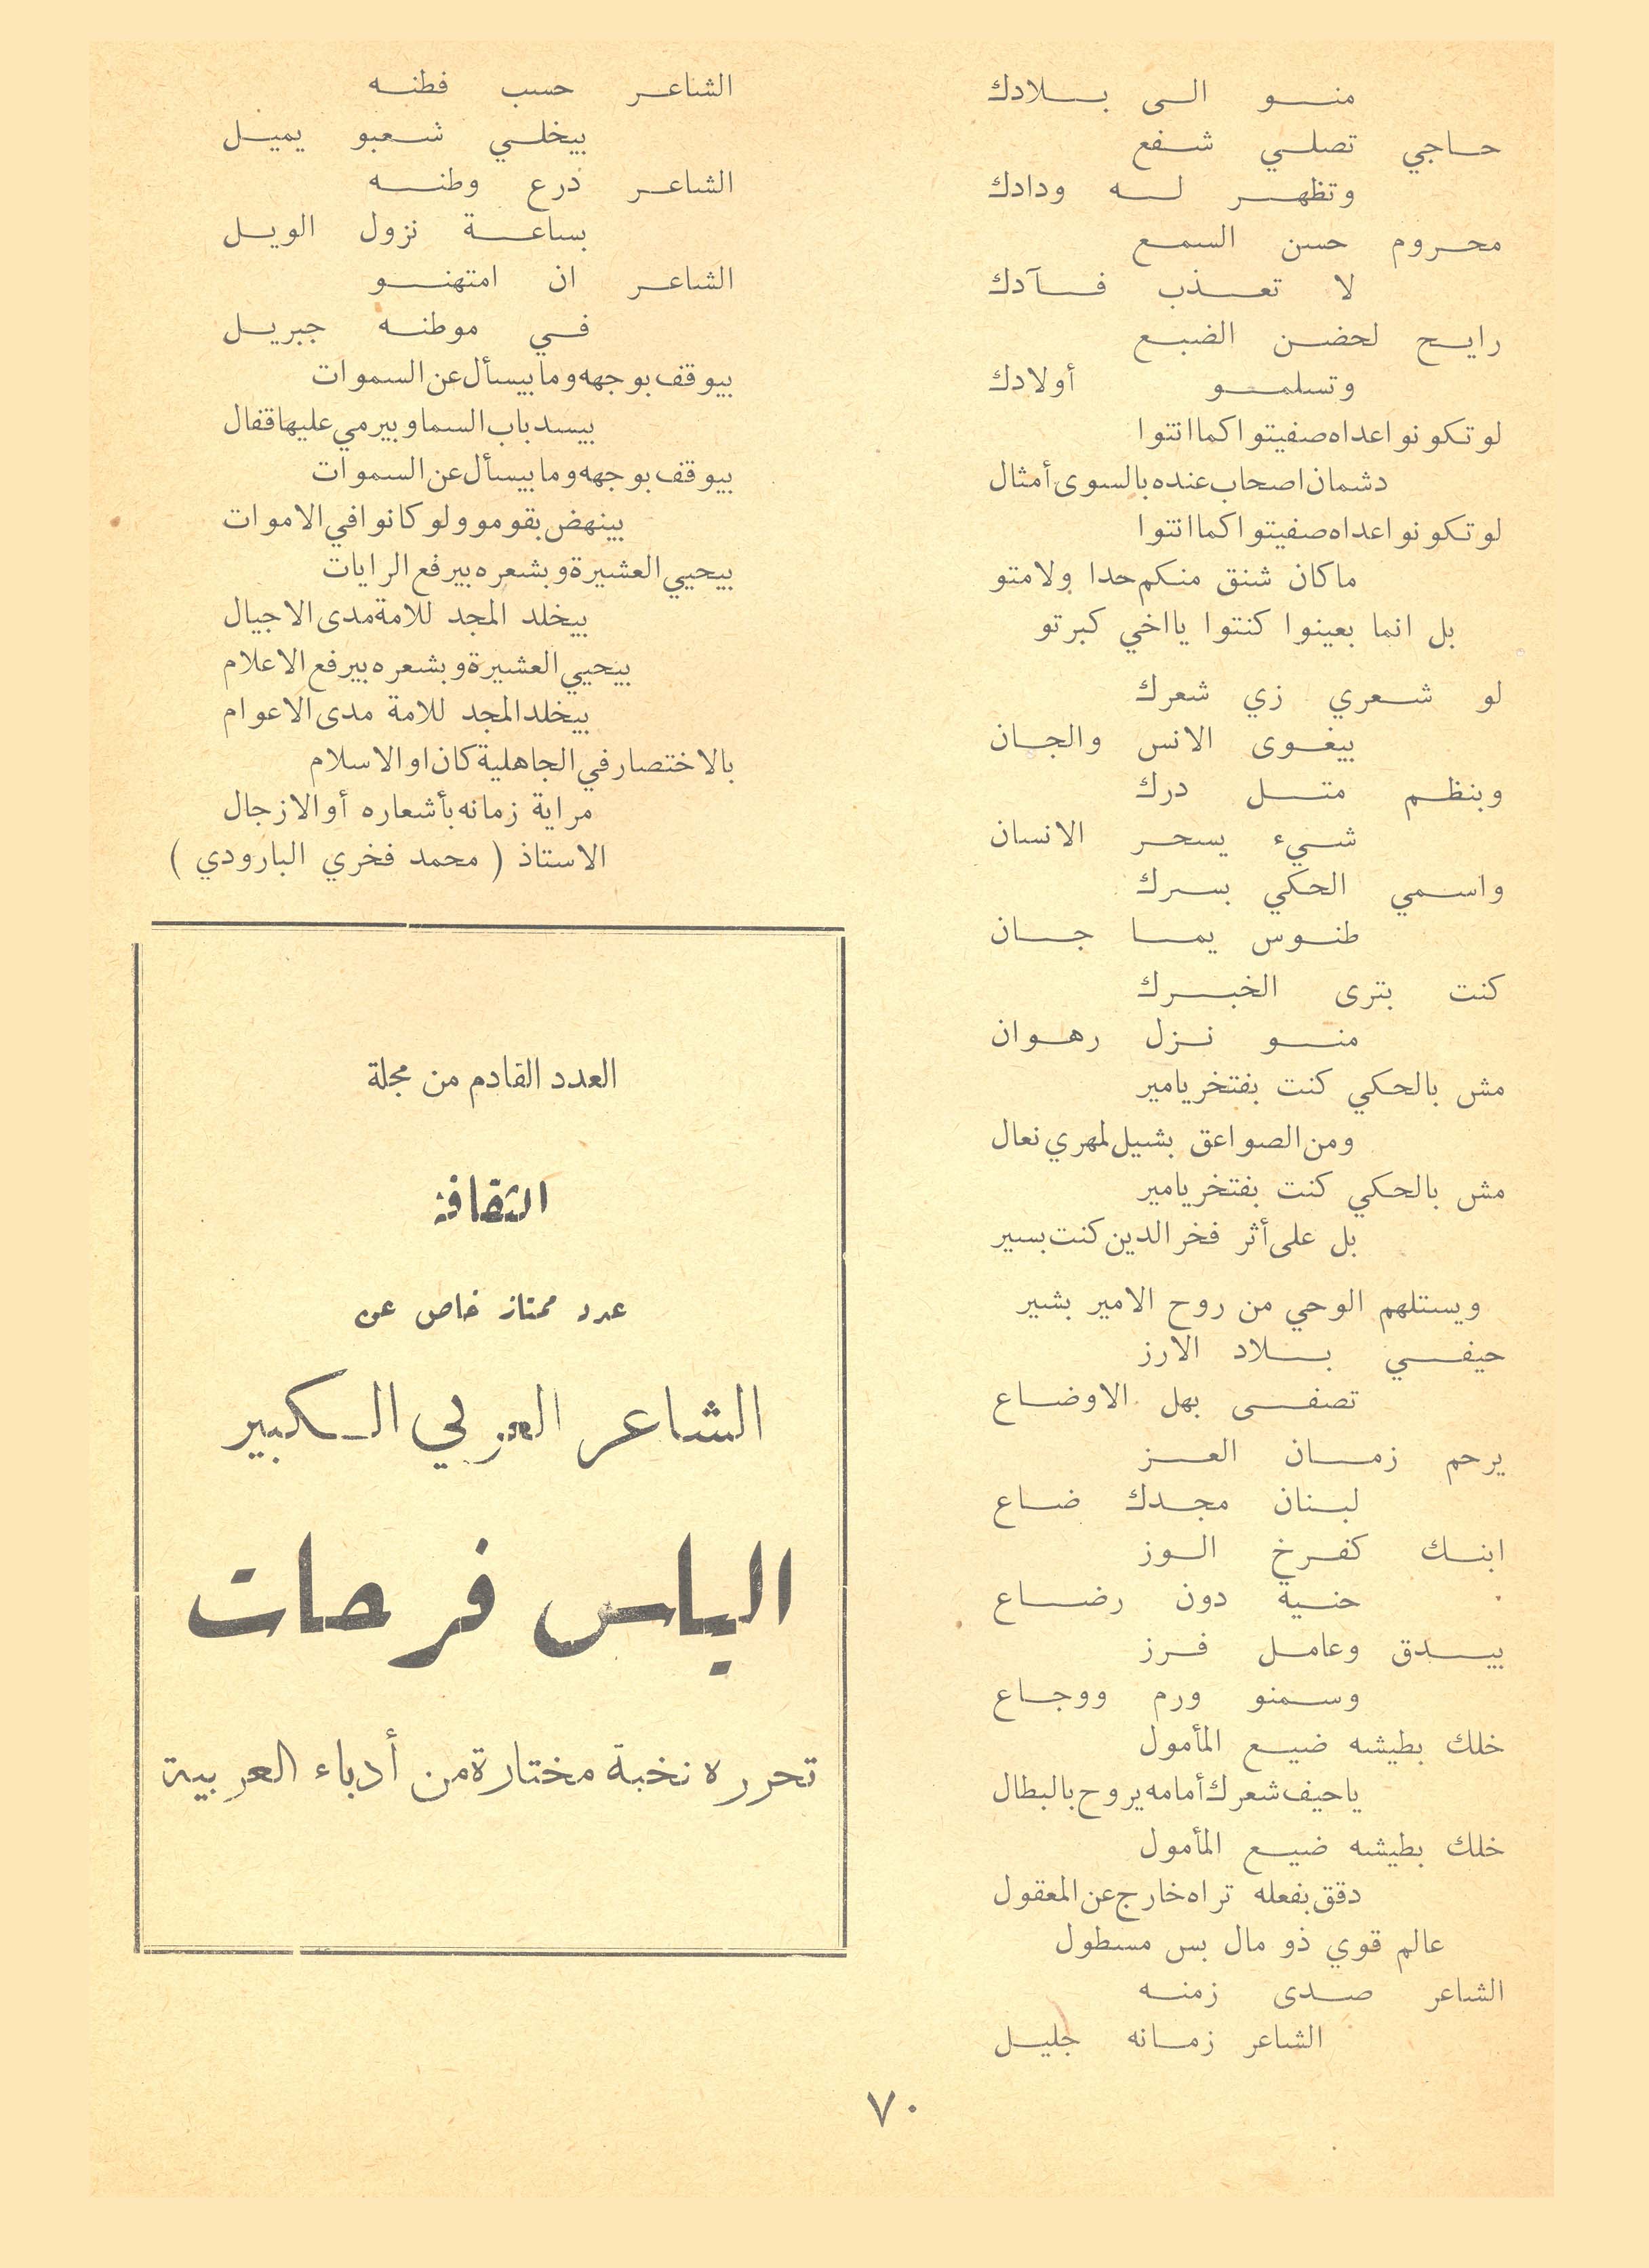 منو الى بلادك
حاجي تصلي شفع
وتظهر له ودادك
محروم حسن السمع
لا تعذب فآدك
رايح لحضن الضبع
وتسلمو أولادك
لو تكونوا اعداه صفيتوا كما انتوا
دشمان اصحاب عنده بالسوى أمثال
لو تكونوا اعداه صفيتوا كما انتوا
ما كان شنق منكم حدا ولا متو
بل انما بعينوا كنتوا يا اخي كبرتو
لو شعري زي شعرك
بيغوى الانس والجان
وبنظم متل درك
شيء يسحر الانسان
واسمي الحكي بسرك
طنوس يما جان
كنت بترى الخبرك
منو نزل رهوان
مش بالحكي كنت بفتخر يامير
ومن الصواعق بشيل لمهري نعال
مش بالحكي كنت بفتخر يامير
بل على أثر فخر الدين كنت بسير
ويستلهم الوحي من روح الامير بشير
حيفي بلاد الارز
تصفى بهل الاوضاع
يرحم زمان العز
لبنان مجدك ضاع
ابنك كفرخ الوز
حنية دون رضاع
بيدق وعامل فرز
وسمنو ورم ووجاع
خلك بطيشه ضيع المأمول
يا حيف شعرك أمامه يروح بالبطال
خلك بطيشه ضيع المأمول
دقق بفعله تراه خارج عن المعقول
عالم قوي ذو مال بس مسطول
الشاعر صدى زمنه
الشاعر زمانه جليل
الشاعر حسب فطنه
بيخلي شعبو يميل
الشاعر درع وطنه
بساعة نزول الويل
الشاعر ان امتهنو
في موطنه جبريل
بيوقف بوجهه وما بيسأل عن السموات
بيسد باب السما وبيرمي عليها قفال
بيوقف بوجهه وما بيسأل عن السموات
بينهض بقومو ولو كانوا في الاموات
بيحيي العشيرة وبشعره بيرفع الرايات
بيخلد المجد للامة مدى الاجيال
بيحيي العشيرة وبشعره بيرفع الاعلام
بيخلد المجد للامة مدى الاعوام
بالاختصار في الجاهلية كان او الاسلام
مراية زمانه بأشعاره أو الازجال
الاستاذ ( محمد فخري البارودي )
العدد القادم من مجلة
الثقافة
عدد ممتاز خاص عن
الشاعر العربي الكبير
الياس فرحات
تحرره نخبة مختارة من أدباء العربية
٧٠